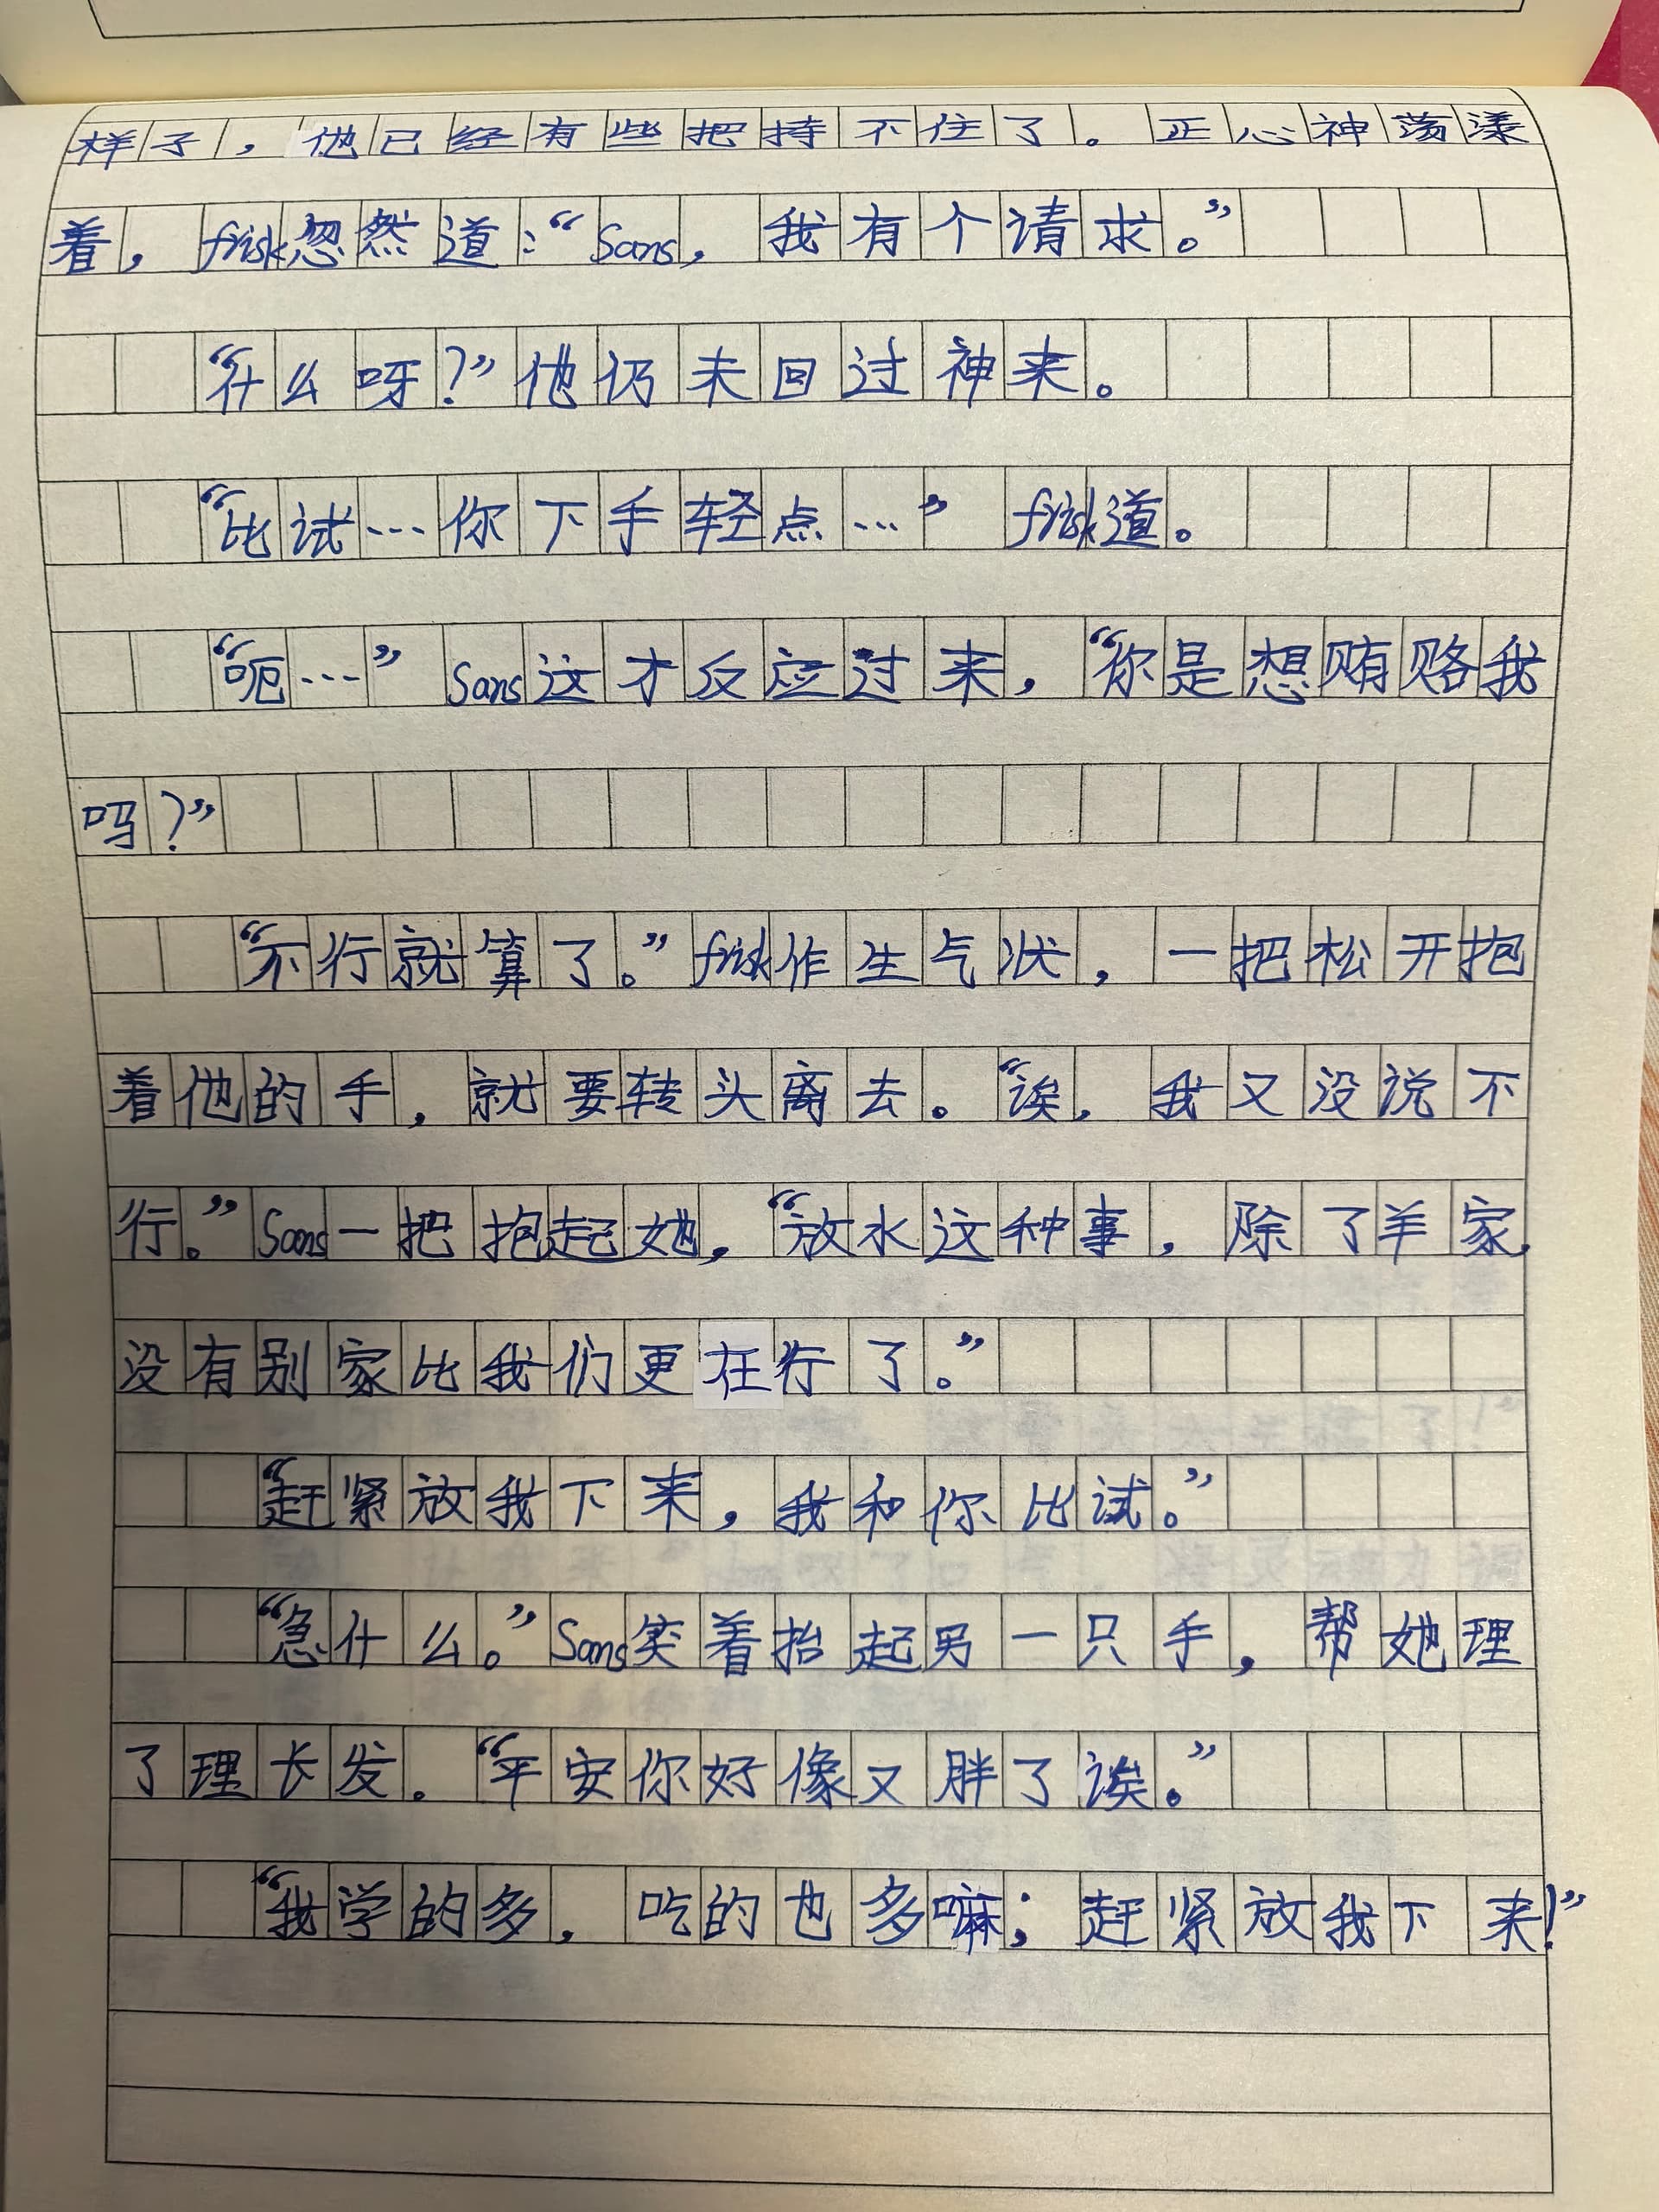 样子，他已经有些把持不住了。正心神荡漾
着，frisk忽然道：“Sans，我有个请求。”
“什么呀？”他仍未回过神来。
“比试…你下手轻点…”frisk道。
“呃…”Sans这才反应过来，“你是想贿赂我
吗？”
“不行就算了。”frisk作生气状，一把松开抱
着他的手，就要转头离去。“诶，我又没说不
行。”Sans一把抱起她，“放水这种事，除了羊家，
没有别家比我们更在行了。”
“赶紧放我下来，我和你比试。”
“急什么。”Sans笑着抬起另一只手，帮她理
了理长发。“平安你好像又胖了诶。”
“我学的多，吃的也多嘛；赶紧放我下来！”